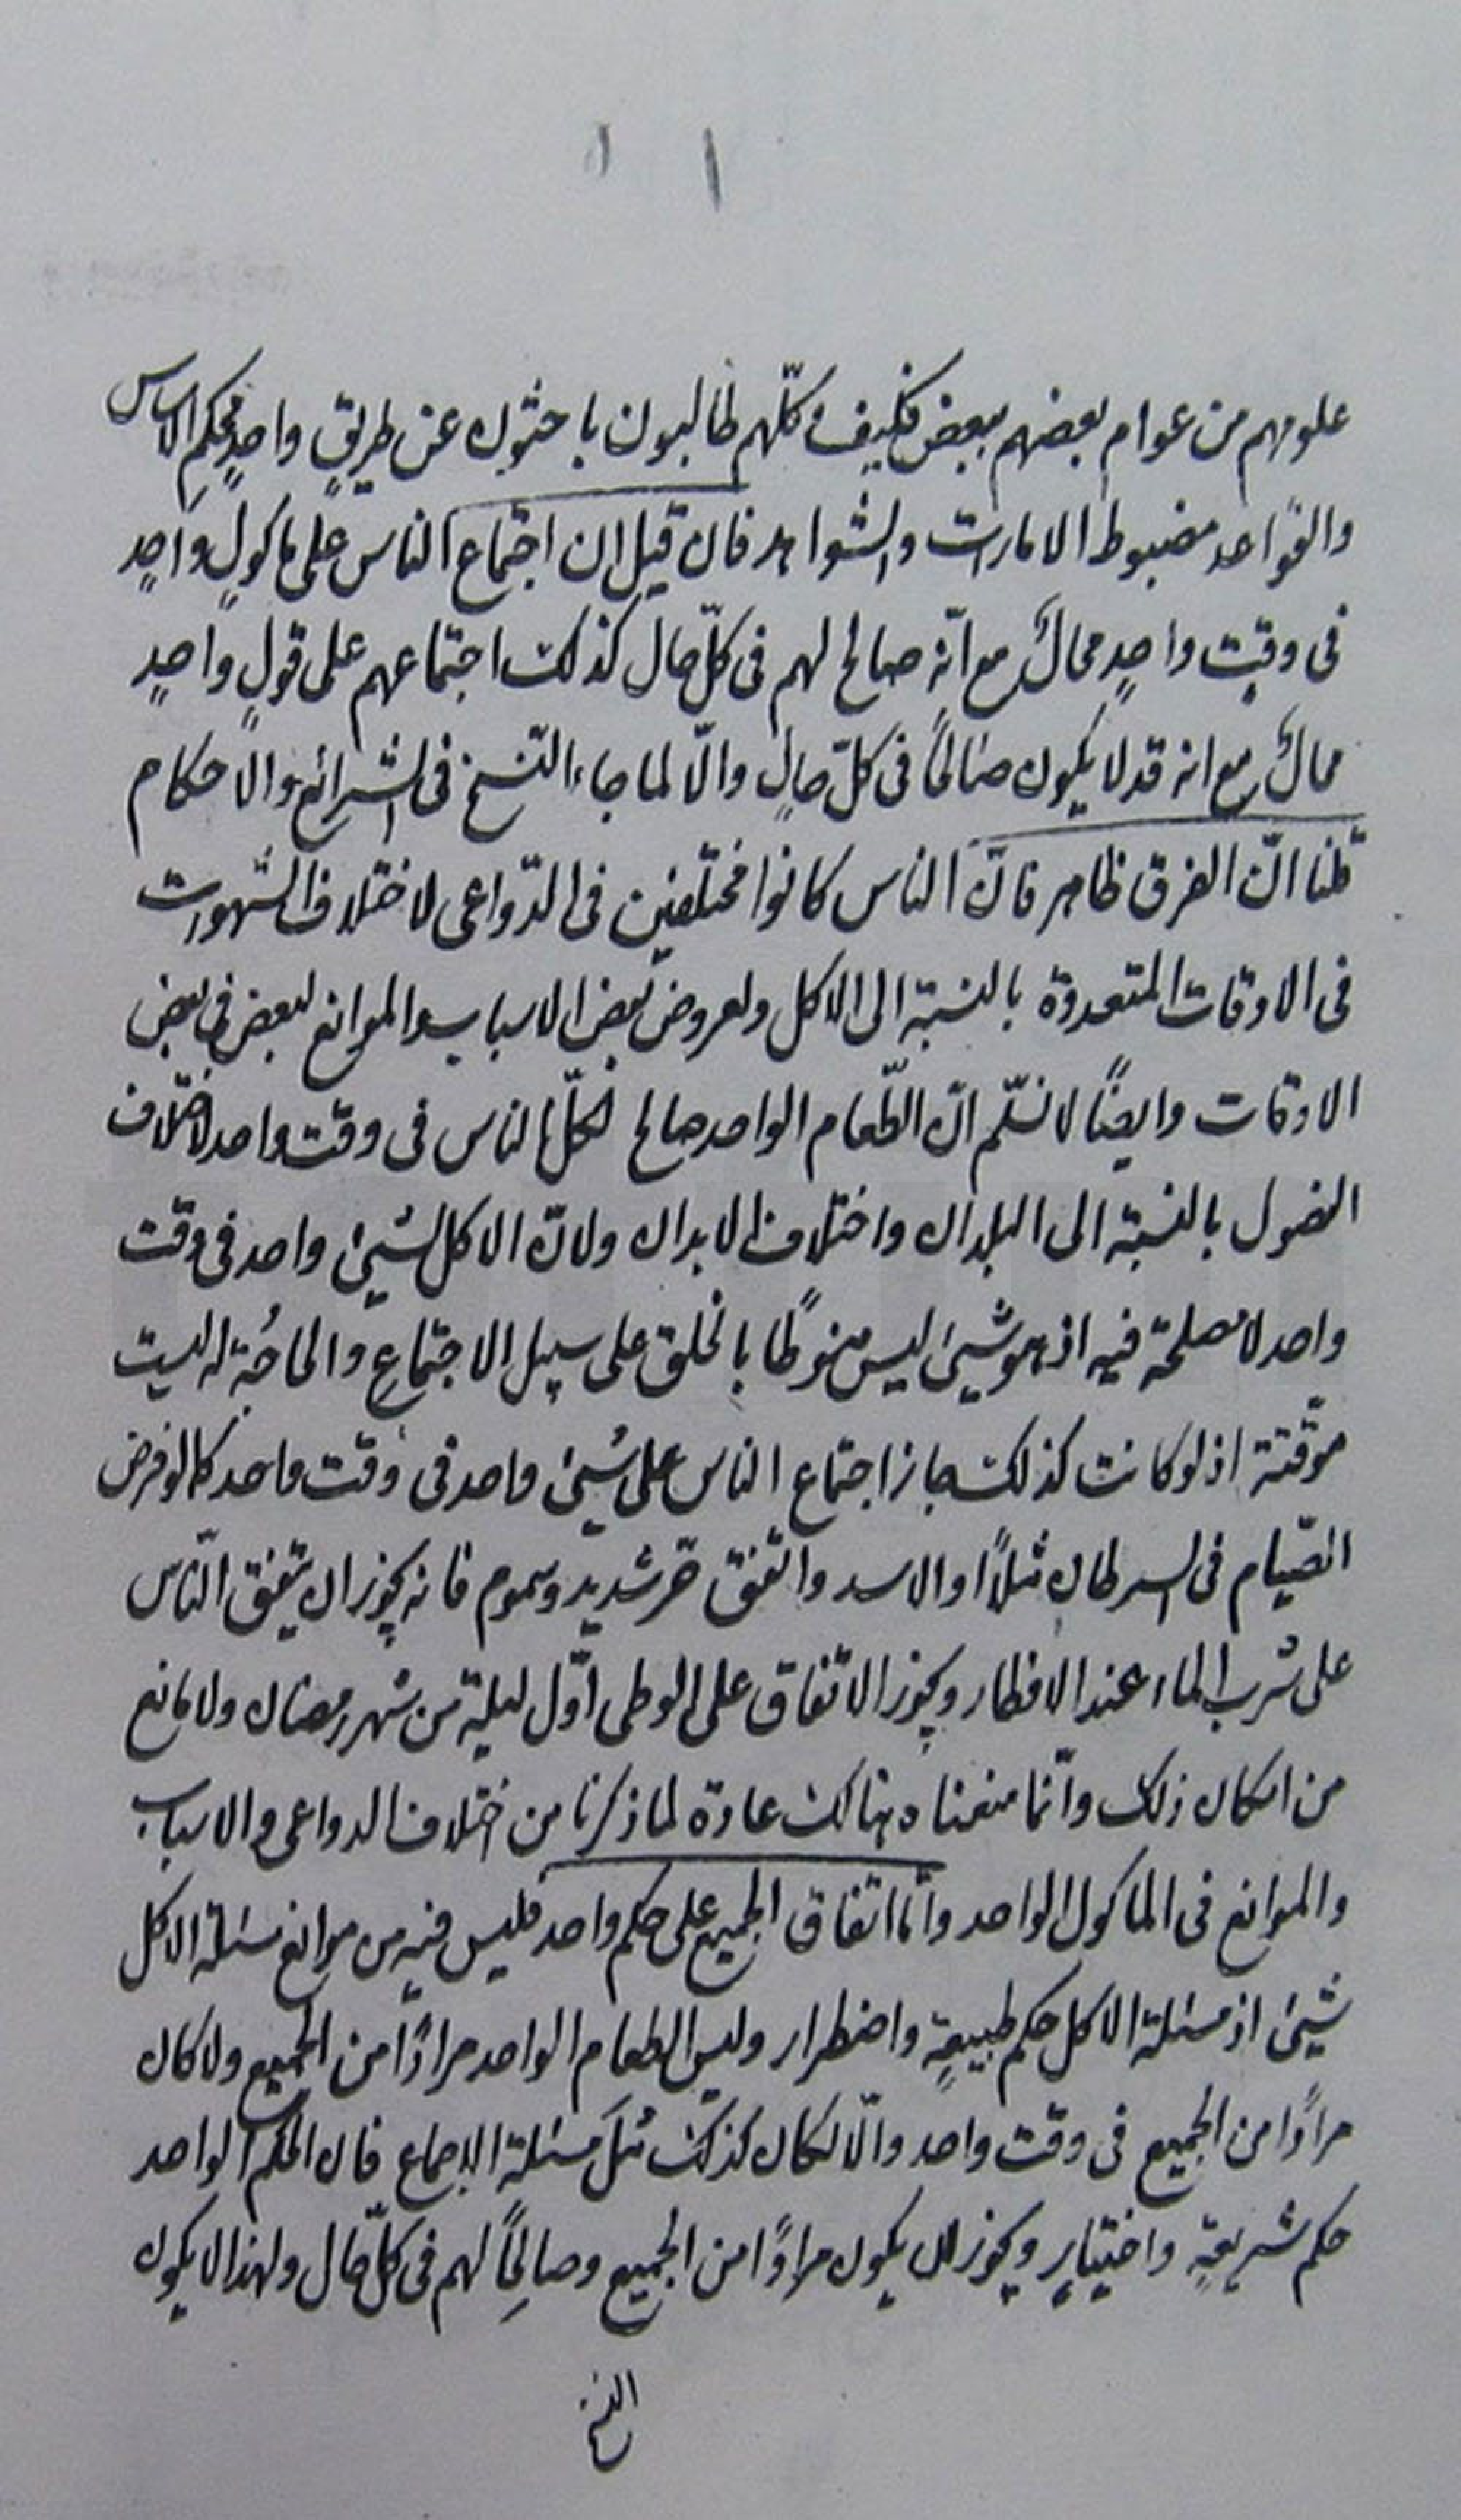 علومهم من عوام بعضهم ببعض فكيف وكلّهم طالبون باحثون عن طريقٍ واحدٍ محكم الاساس
والقواعد مضبوط الامارات والشواهد فان قيل ان اجتماع الناس على ماكولٍ واحدٍ
فى وقتٍ واحدٍ محالٌ مع انّه صالح لهم فى كلّ حال كذلك اجتماعهم على قولٍ واحدٍ
محالٌ مع انه قد لا يكون صالحًا فى كلّ حالٍ والّا لما جاء النّسخ فى الشرائع والاحكام
قلنا انّ الفرق ظاهر فانّ الناس كانوا مختلفين فى الدّواعى لاختلاف الشهوات
فى الاوقات المتعددة بالنسبة الى الاكل ولعروض بعض الاسباب والموانع لبعض فى بعض
الاوقات وايضًا لا نسلّم انّ الطّعام الواحد صالح لكلّ الناس فى وقت واحد لاختلاف
الفصول بالنسبة الى البلدان واختلاف الابدان ولانّ الاكل لشيئ واحد فى وقت
واحد لا مصلحة فيه اذ هو شيئ ليس منوطًا بالخلق على سبيل الاجتماع والحاجُة له ليست
موقّتة اذ لو كانت كذلك جاز اجتماع الناس على شيئ واحد فى وقت واحد كما لو فرض
الصّيام فى السرطان مثلاً او الاسد واتفق حرّ شديد وسموم فانه يجوز ان يتفق النّاس
على شُرب الماء عند الافطار ويجوز الاتفاق على الوطى اوّل ليلة من شهر رمضان ولا مانع
من امكان ذلك وانّما منعناه هنالك عادة لما ذكرنا من اختلاف الدواعى والاسباب
والموانع فى الماكول الواحد وامّا اتفاق الجميع على حكم واحد فليس فيه من موانع مسئلة الاكل
شيئ اذ مسئلة الاكل حكم طبيعةٍ واضطرار وليس الطعام الواحد مرادًا من الجميع ولا كان
مرادًا من الجميع فى وقت واحد والّا لكان كذلك مثلَ مسئلة الاجماع فان الحكم الواحد
حكم شريعةٍ واختيارٍ ويجوز ان يكون مرادًا من الجميع وصالحًا لهم فى كلّ حال ولهذا لا يكون
النسخ